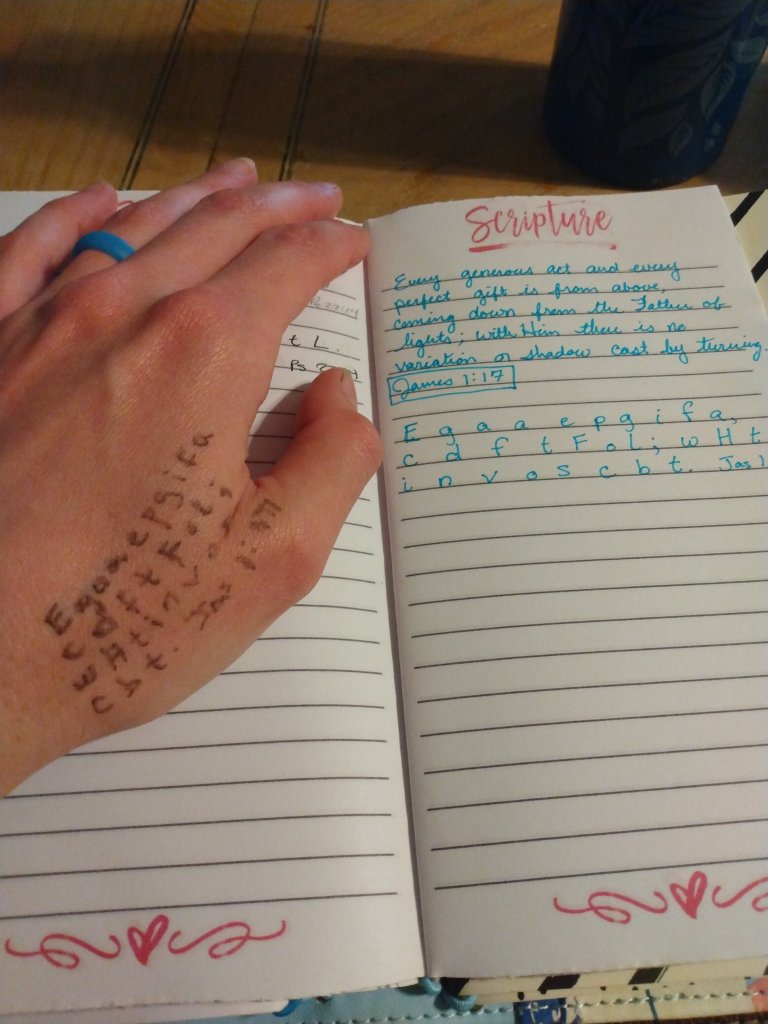 t L.
E g a a e p g i f a
c d f t F o L ;
w H t i n v o
c b t. Jas 1:17
Scripture
Every generous act and every
perfect gift is from above,
coming down from the Father of
lights; with Him there is no
variation or shadow cast by turning.
James 1:17
E g a a e p g i f a,
c d f t F o L; w H t
i n v o s c b t. Jas 1